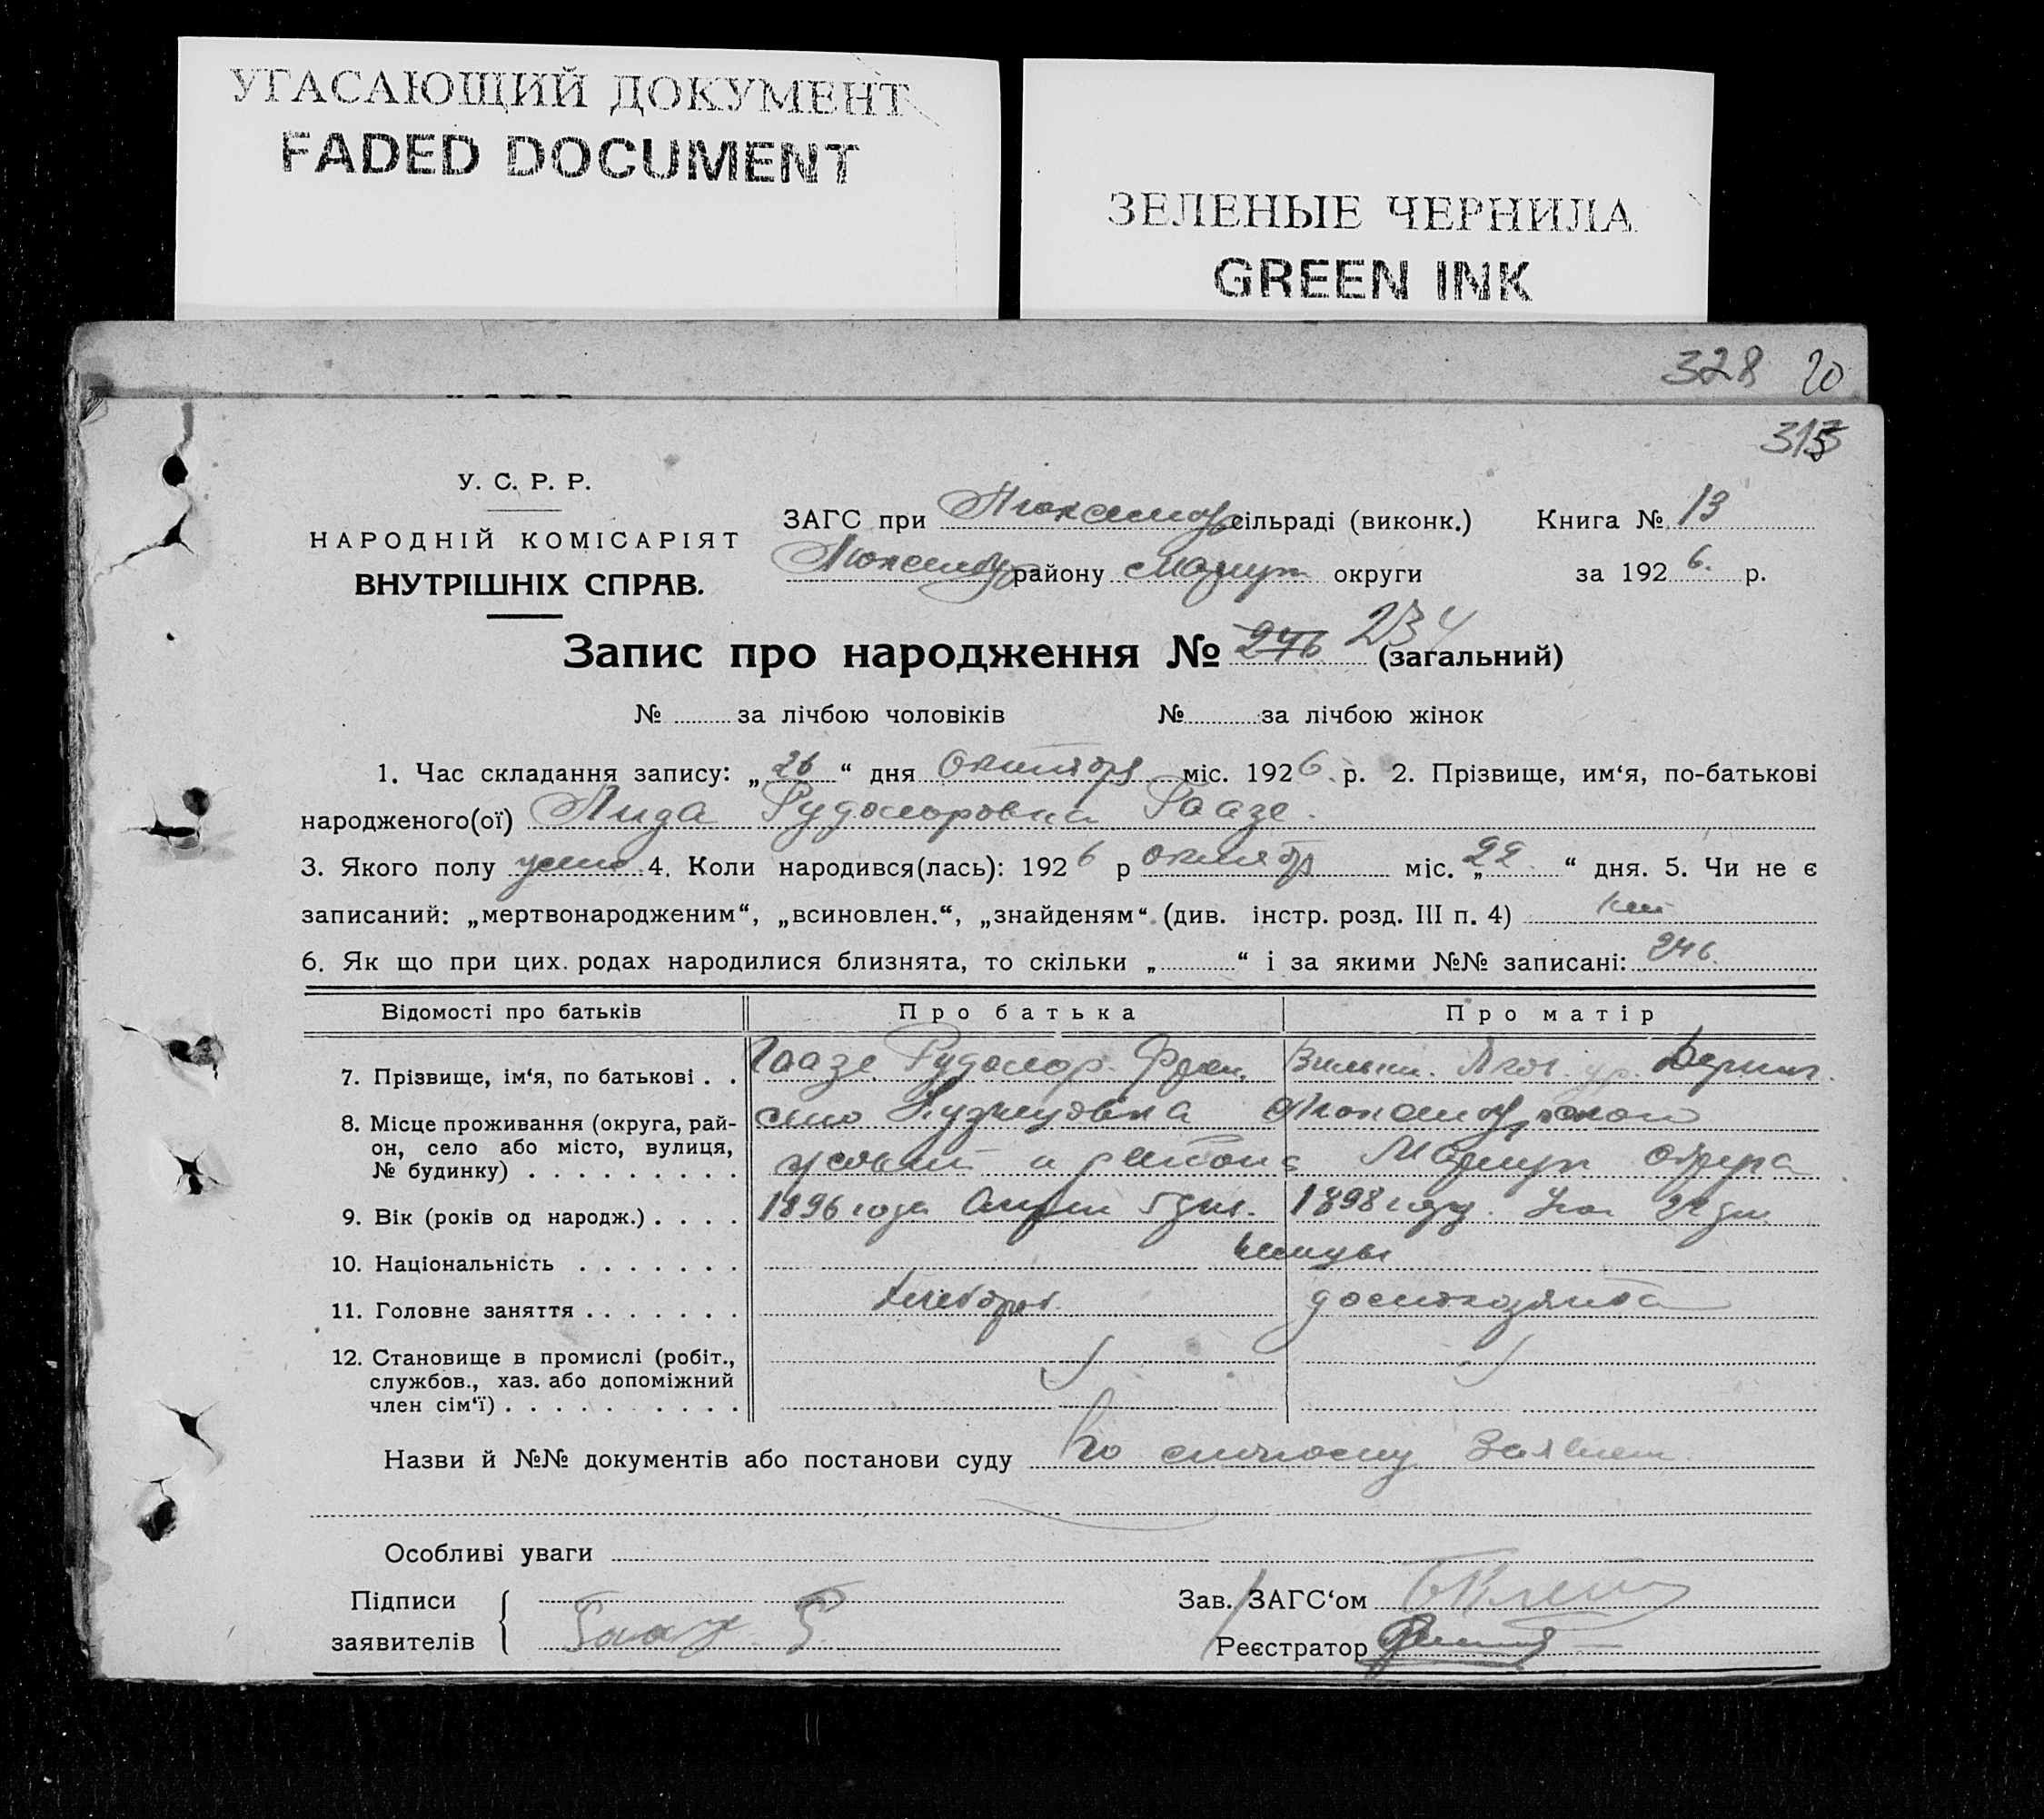 УГАСАЮЩИЙ ДОКУМЕНТ
FADED DOCUMENT
ЗЕЛЕНЫЕ ЧЕРНИЛА
GREEN INK
328 20
313
У. С. Р. Р.
НАРОДНІЙ КОМІСАРІЯТ
ВНУТРІШНІХ СПРАВ.
ЗАГС при сільраді (виконк.) Книга № 13
району Мариуп округи за 1926. р.
Запис про народження № 246 234 (загальний)
№ за лічбою чоловіків № за лічбою жінок
1. Час складання запису: „26“ дня Октября міс. 1926 р. 2. Прізвище, им‘я, по-батькові
народженого(ої) Лида Рудольфовна Гаазе.
3. Якого полу жено 4. Коли народився(лась): 1926 р Октябр міс. „22“ дня. 5. Чи не є
записаний: „мертвонародженим“, „всиновлен.“, „знайденям“ (див. інстр. розд. III п. 4) нет
6. Як що при цих родах народилися близнята, то скільки „ “ і за якими №№ записані: 246
Відомості про батьків Про батька Про матір
7. Прізвище, ім‘я, по батькові . . Гаазе Рудольф. Фран. Вильгел. Яков. ур.
8. Місце проживання (округа, рай-
он, село або місто, вулиця,
№ будинку) . . . . . . . . . района Мариуп округа
9. Вік (років од народж.) . . . . 1896 года 5 дня. 1898 году. 22 дня
10. Національність . . . . . . . немцы
11. Головне заняття . . . . . . . хлебороб. домохозяйка
12. Становище в промислі (робіт.,
службов., хаз. або допоміжний
член сім‘ї) . . . . . . . . . .
Назви й №№ документів або постанови суду по личному заявлен.
Особливі уваги
Підписи Зав. ЗАГС‘ом
заявителів Реєстратор